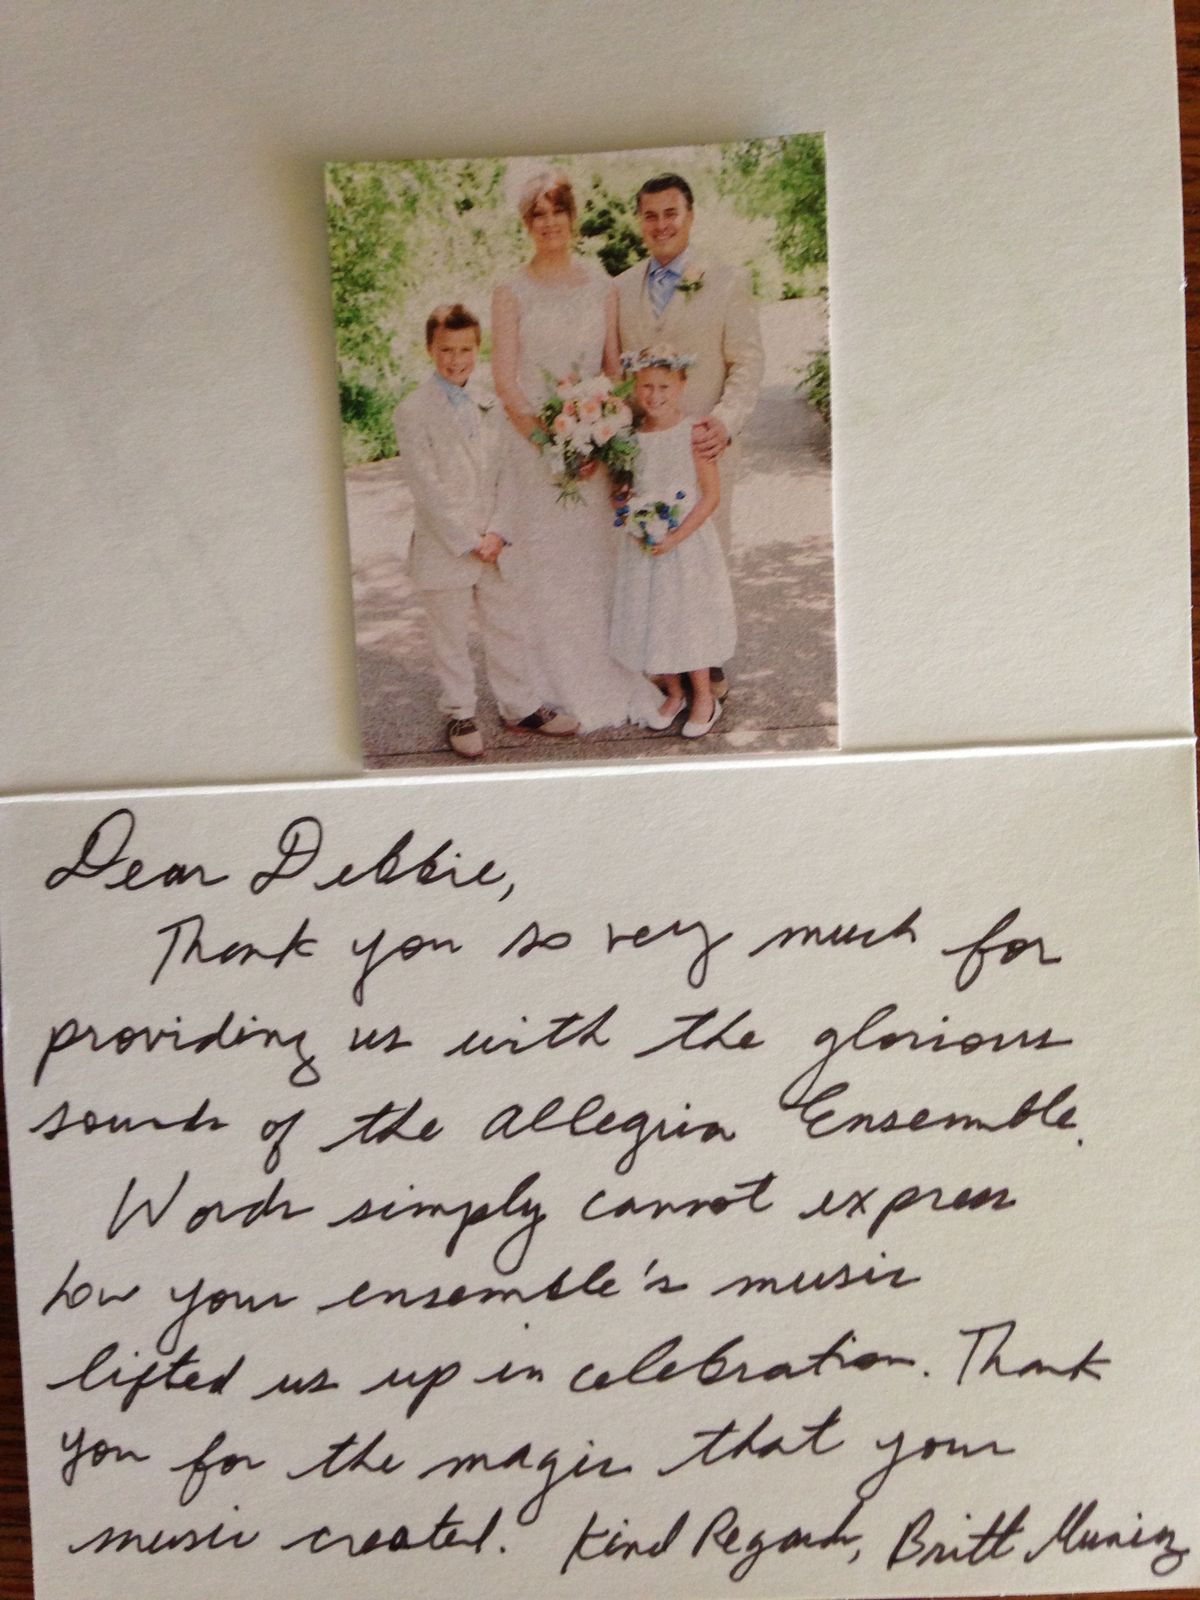 Dear Debbie,
Thank you so very much for
providing us with the glorious
sounds of the Allegria Ensemble.
Words simply cannot express
how your ensemble's music
lifted us up in celebration. Thank
you for the magic that your
music created. Kind Regards, Britt Muniz